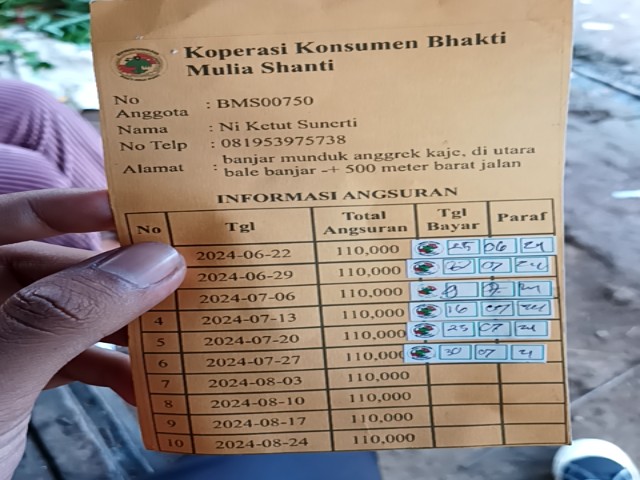 Koperasi Konsumen Bhakti
Mulia Shanti
No Anggota : BMS00750
Nama : Ni Ketut Sunerti
No Telp : 081953975738
Alamat : banjar munduk anggrek kaje, di utara
bale banjar -+ 500 meter barat jalan
INFORMASI ANGSURAN
No Tgl Total Angsuran Tgl Bayar Paraf
2024-06-22 110,000 25 06 24
2024-06-29 110,000 07 24
2024-07-06 110,000 24
4 2024-07-13 110,000 16 07 24
5 2024-07-20 110,000 23 07 24
6 2024-07-27 110,000 30 07 24
7 2024-08-03 110,000
8 2024-08-10 110,000
9 2024-08-17 110,000
10 2024-08-24 110,000